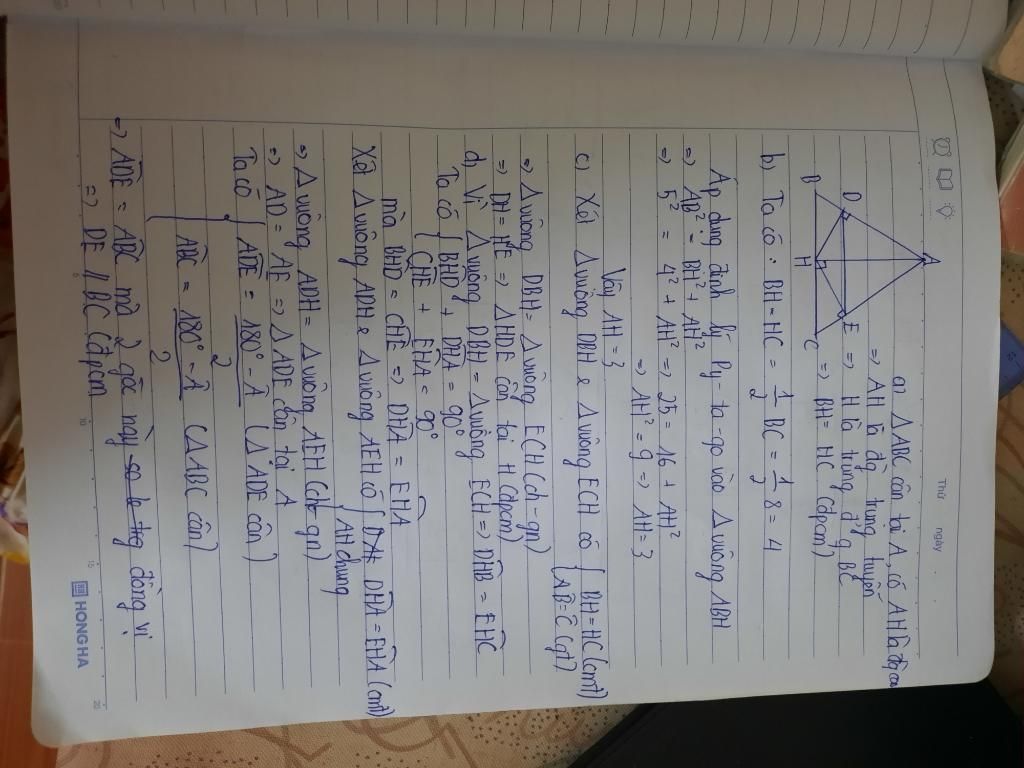 Thứ ngày
a) △ABC cân tại A, có AH là đg cao
⇒ AH là đg trung tuyến
⇒ H là trung đ' g BC
⇒ BH = HC (đpcm)
A
D
E
B
H
C
b) Ta có: BH = HC = 1/2 BC = 1/2 8 = 4
Áp dụng định lý Py-ta-go vào △vuông ABH
⇒ AB² = BH² + AH²
⇒ 5² = 4² + AH² ⇒ 25 = 16 + AH²
⇒ AH² = 9 ⇒ AH = 3
Vậy AH = 3
c) Xét △vuông DBH & △vuông ECH có { BH = HC (cmt)
B̂ = Ĉ (gt)
⇒ △vuông DBH = △vuông ECH (ch - gn)
⇒ DH = HE ⇒ △HDE cân tại H (đpcm)
d, Vì △vuông DBH = △vuông ECH ⇒ DHB = EHC
Ta có { BHD + DHA = 90°
CHE + EHA = 90°
mà BHD = CHE ⇒ DHA = EHA
Xét △vuông ADH & △vuông AEH có { DHA = EHA (cmt)
AH chung
⇒ △vuông ADH = △vuông AEH (ch - gn)
⇒ AD = AE ⇒ △ADE cân tại A
Ta có { ADE = 180° - Â / 2 (△ADE cân)
ABC = 180° - Â / 2 (△ABC cân)
⇒ ADE = ABC mà 2 góc này đồng vị
⇒ DE // BC (đpcm)
5
10
15
20
HONG HA